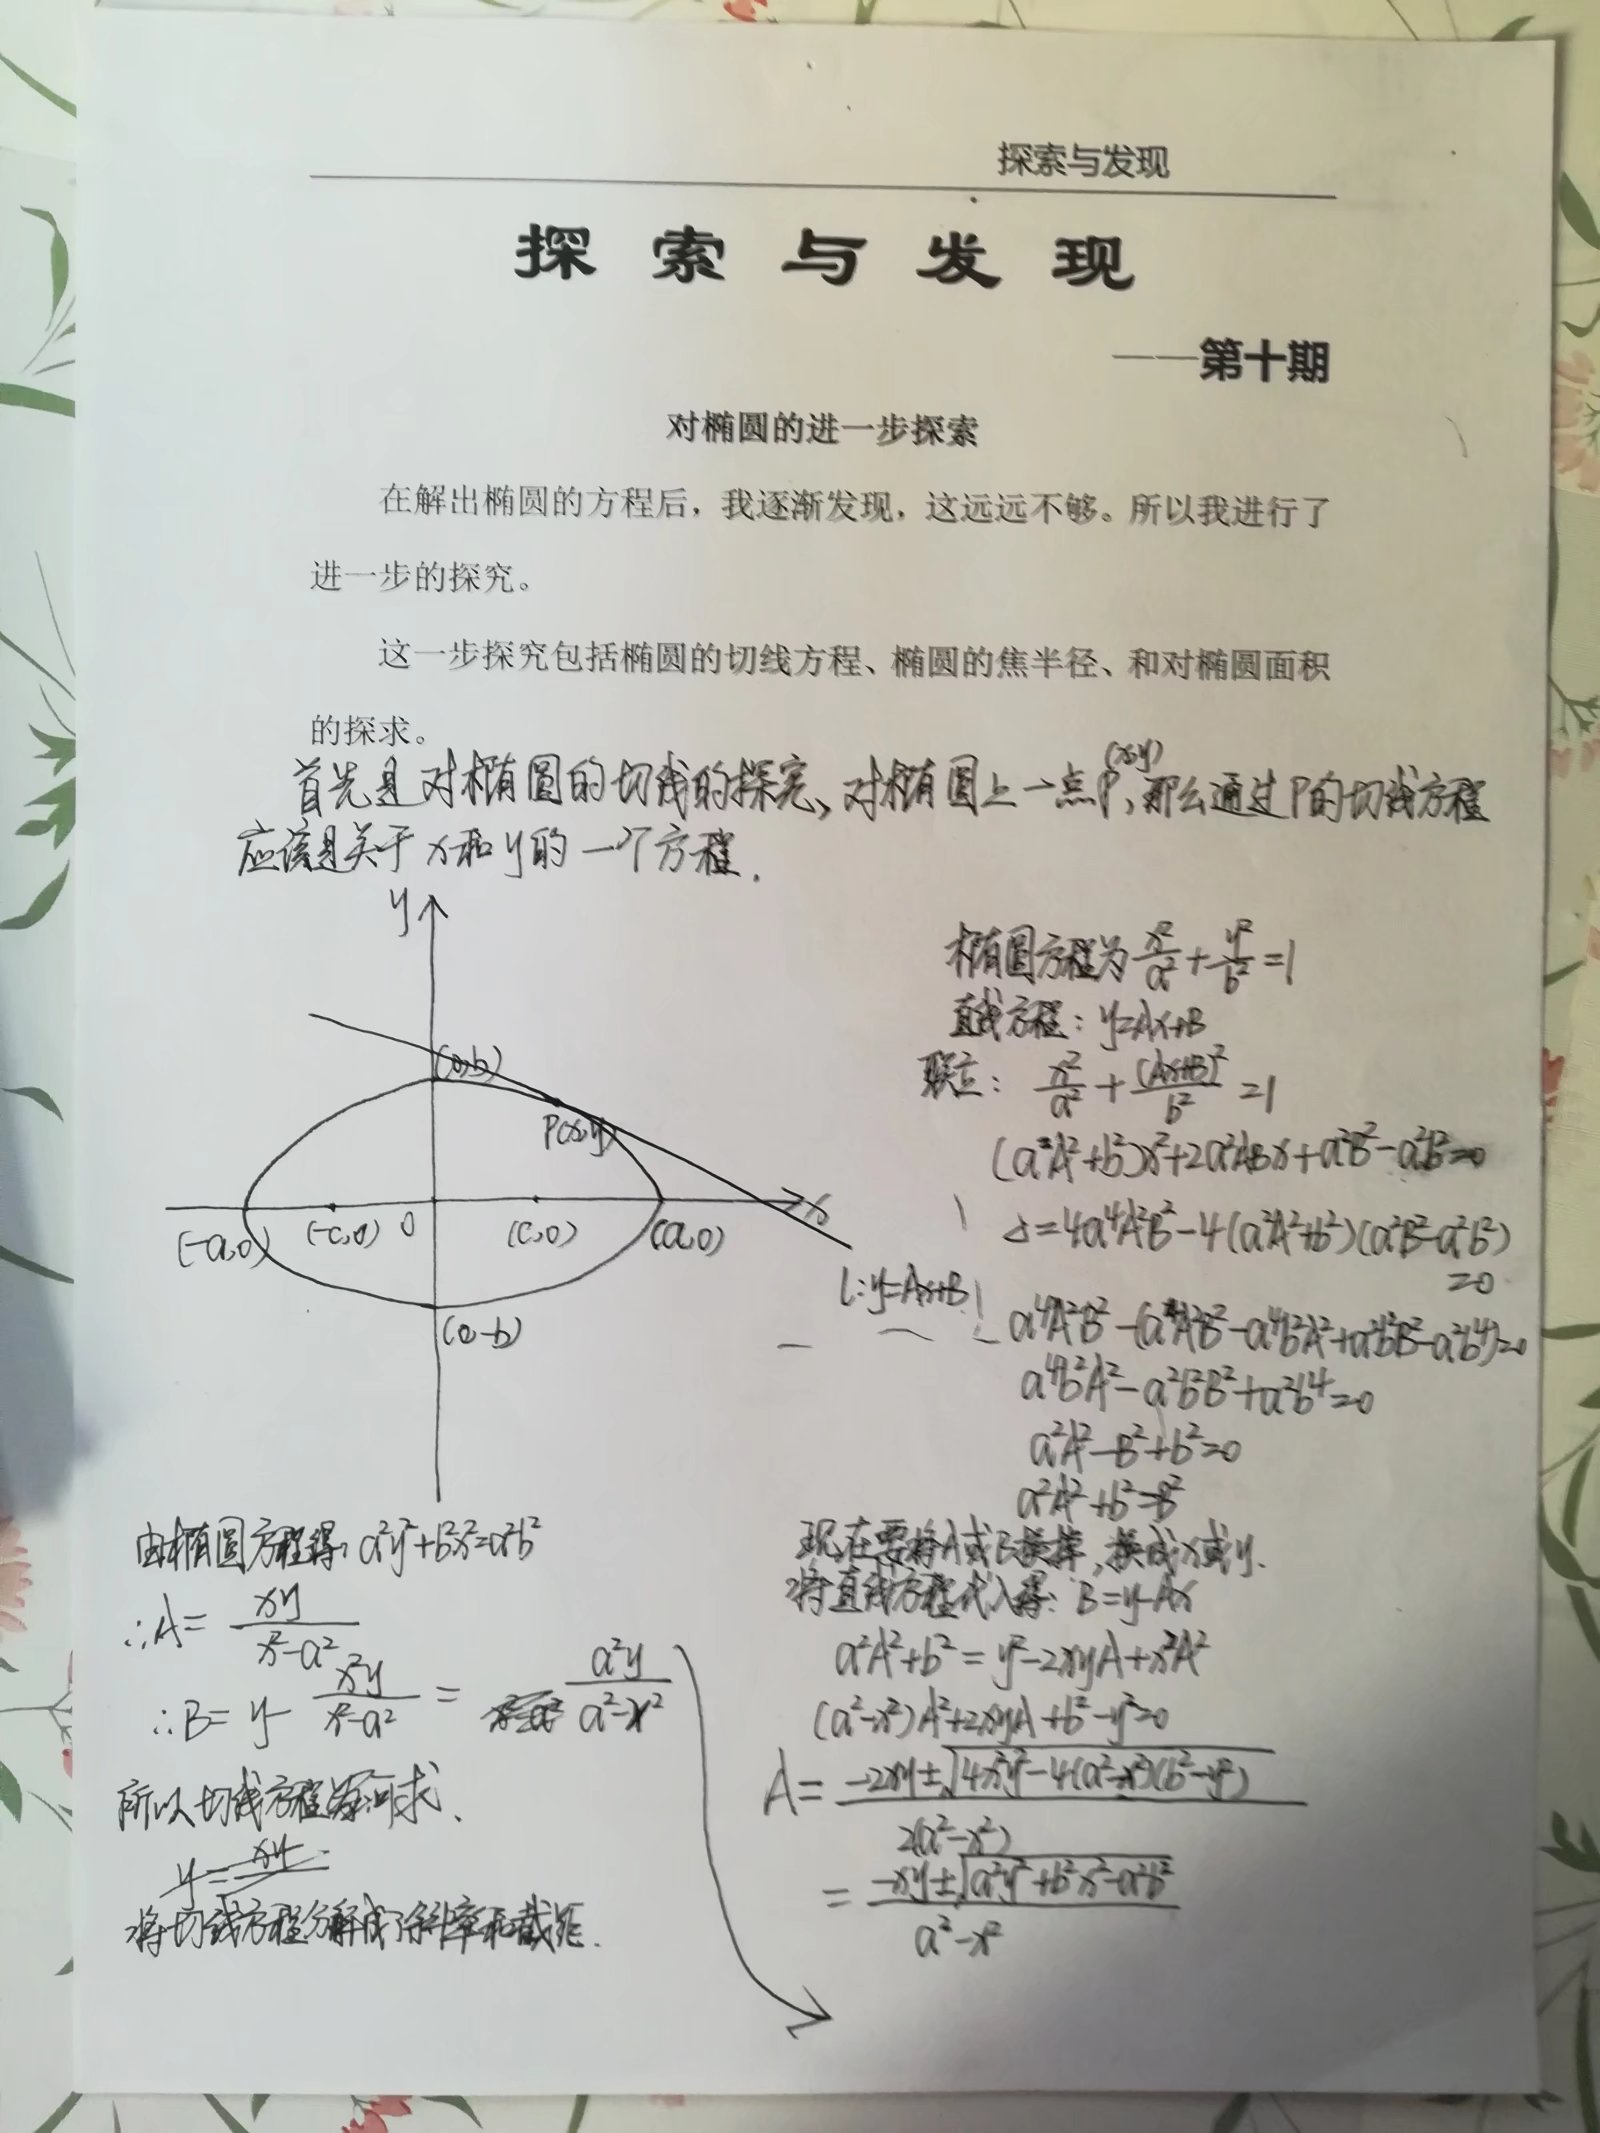 探索与发现
探 索 与 发 现
——第十期
对椭圆的进一步探索
在解出椭圆的方程后，我逐渐发现，这远远不够。所以我进行了
进一步的探究。
这一步探究包括椭圆的切线方程、椭圆的焦半径、和对椭圆面积
的探求。
首先是对椭圆的切线的探究，对椭圆上一点P(x,y)，那么通过P的切线方程
应该是关于x和y的一个方程.
y
(0,b)
P(x,y)
x
(-a,0) (-c,0) 0 (c,0) (a,0)
l:y=Ax+B
(0,-b)
椭圆方程为 x²/a² + y²/b² =1
直线方程：y=Ax+B
联立： x²/a² + (Ax+B)²/b² =1
(a²A²+b²)x²+2a²ABx+a²B²-a²b²=0
Δ=4a⁴A²B²-4(a²A²+b²)(a²B²-a²b²)
=0
a⁴A²B²-(a⁴A²B²-a⁴b²A²+a²b²B²-a²b⁴)=0
a⁴b²A²-a²b²B²+a²b⁴=0
a²A²-B²+b²=0
a²A²+b²=B²
现在要将A或B换掉，换成x或y.
将直线方程代入得：B=y-Ax
a²A²+b²=y²-2xyA+x²A²
(a²-x²)A²+2xyA+b²-y²=0
A= (-2xy±√(4x²y²-4(a²-x²)(b²-y²)))/(2(a²-x²))
= (-xy±√(a²y²+b²x²-a²b²))/(a²-x²)
由椭圆方程得：a²y²+b²x²=a²b²
∴A= xy/(x²-a²)
∴B= y- x²y/(x²-a²) = a²y/(a²-x²)
所以切线方程可求.
将切线方程分解成了斜率和截距.